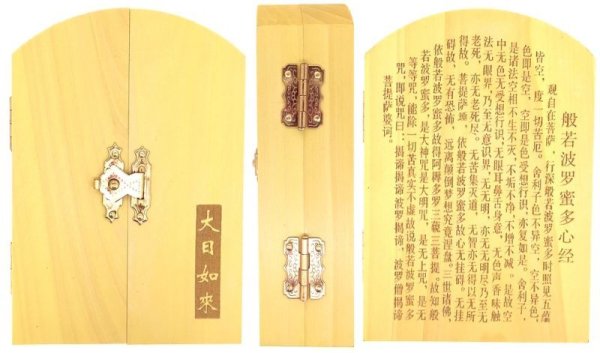 大日如來
般若波罗蜜多心经
观自在菩萨，行深般若波罗蜜多时照见五蕴
皆空，度一切苦厄。舍利子色不异空，空不异色，
色即是空，空即是色受想行识，亦复如是。舍利子，
是诸法空相不生不灭，不垢不净，不增不减。是故空
中无色无受想行识，无眼耳鼻舌身意，无色声香味触
法无眼界，乃至无意识界，无无明，亦无无明尽乃至无
老死，亦无老死尽。无苦集灭道，无智亦无得以无所
得故。菩提萨埵，依般若波罗蜜多故心无挂碍。无挂
碍故，无有恐怖，远离颠倒梦想究竟涅盘。三世诸佛，
依般若波罗蜜多故得阿耨多罗三藐三菩提。故知般
若波罗蜜多，是大神咒是大明咒，是无上咒，是无
等等咒，能除一切苦真实不虚故说般若波罗蜜多
咒，即说咒曰：揭谛揭谛波罗揭谛，波罗僧揭谛
菩提萨婆诃。